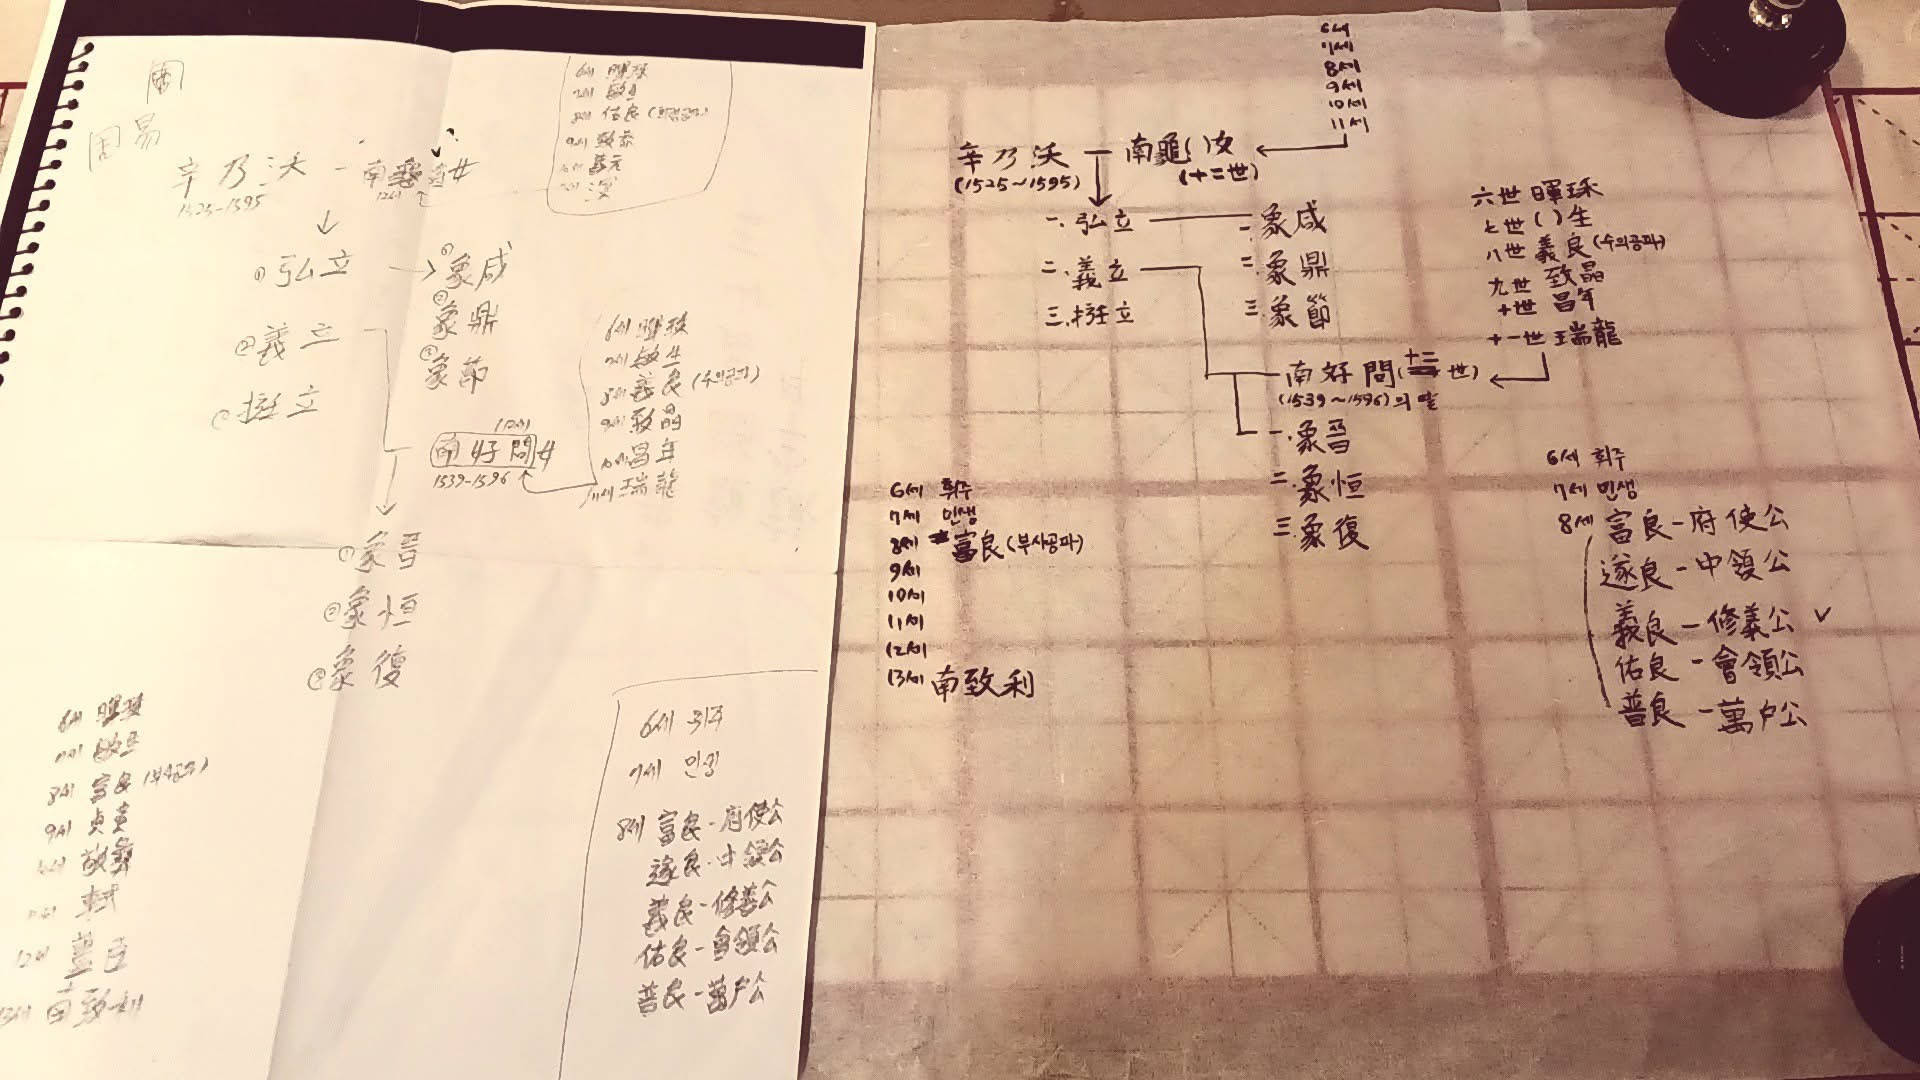 周易
6세 暉珠
7세 敏生
8세 佑良
9세 致恭
辛乃沃 - 南 女
1525-1595
12세
↓
① 弘立 → ① 象咸
② 象鼎
② 義立
③ 象節
挺立
6세 暉珠
7세 敏生
8세 義良 (수의공파)
9세 致晶
10세 昌年
11세 瑞龍
12세
南好問 女
1539-1596
① 象晉
② 象恒
③ 象復
6세 暉珠
7세 敏生
8세 富良 (부사공파)
9세
10세 敬
11세 軾
12세 蓋臣
13세 南致利
6세 휘주
7세 민생
8세 富良 - 府使公
遂良 - 中領公
義良 - 修義公
佑良 - 會領公
普良 - 萬戶公
6세
7세
8세
9세
10세
11세
辛乃沃 - 南龜( )女
(1525~1595) (十二世)
一. 弘立 一. 象咸
二. 義立 二. 象鼎
三. 挺立 三. 象節
六世 暉珠
七世 ( )生
八世 義良 (수의공파)
九世 致晶
十世 昌年
十一世 瑞龍
南好問 (十二世)
(1539~1596)의 딸
一. 象晉
二. 象恒
三. 象復
6세 휘주
7세 민생
8세 富良 (부사공파)
9세
10세
11세
12세
13세 南致利
6세 휘주
7세 민생
8세 富良 - 府使公
遂良 - 中領公
義良 - 修義公 ✓
佑良 - 會領公
普良 - 萬戶公